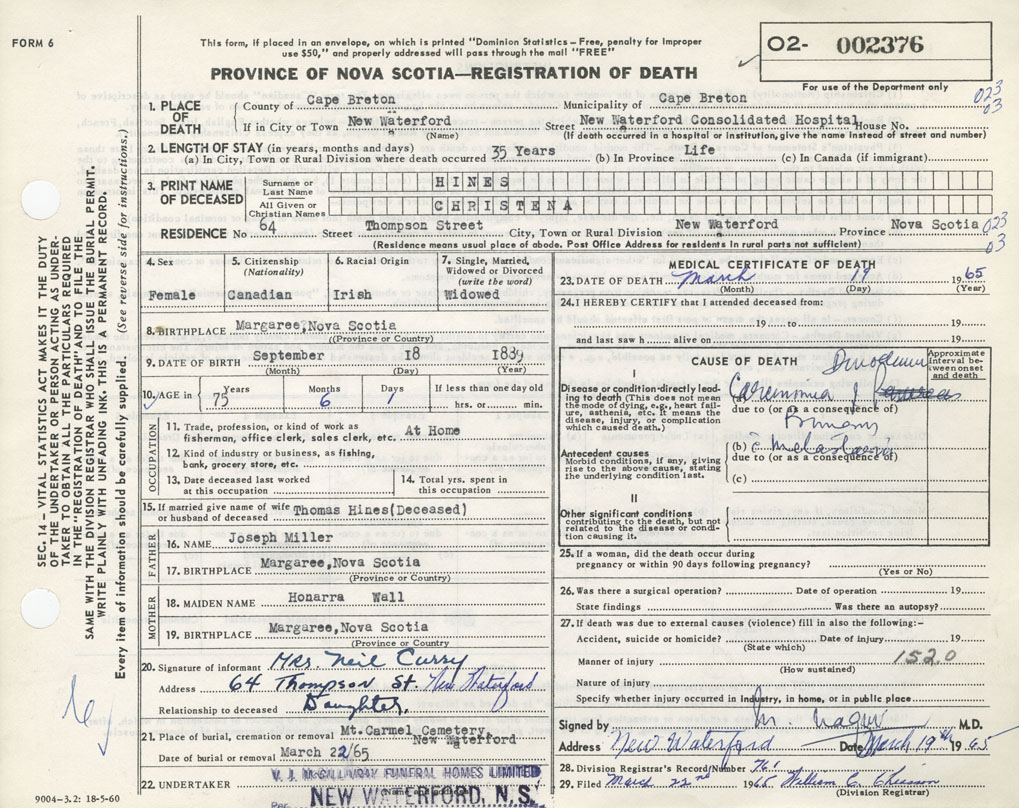 FORM 6
This form, if placed in an envelope, on which is printed "Dominion Statistics – Free, penalty for improper
use $50," and properly addressed will pass through the mail "FREE"
O2- 002376
For use of the Department only
PROVINCE OF NOVA SCOTIA—REGISTRATION OF DEATH
023
03
1. PLACE OF DEATH
County of Cape Breton Municipality of Cape Breton
If in City or Town New Waterford Street New Waterford Consolidated Hospital House No.
(Name) (If death occurred in a hospital or institution, give the name instead of street and number)
2. LENGTH OF STAY (in years, months and days)
(a) In City, Town or Rural Division where death occurred 35 Years (b) In Province Life (c) In Canada (if immigrant)
3. PRINT NAME OF DECEASED
Surname or Last Name HINES
All Given or Christian Names CHRISTENA
RESIDENCE No 64 Street Thompson Street City, Town or Rural Division New Waterford Province Nova Scotia
(Residence means usual place of abode. Post Office Address for residents in rural parts not sufficient)
023
03
4. Sex
Female
5. Citizenship
(Nationality)
Canadian
6. Racial Origin
Irish
7. Single, Married,
Widowed or Divorced
(write the word)
Widowed
8. BIRTHPLACE Margaree, Nova Scotia
((Province or Country)
9. DATE OF BIRTH September 18
(Month) (Day) (Year)
10. AGE in Years 75 Months 6 Days 1 If less than one day old
hrs. or min.
OCCUPATION
11. Trade, profession, or kind of work as
fisherman, office clerk, sales clerk, etc. At Home
12. Kind of industry or business, as fishing,
bank, grocery store, etc.
13. Date deceased last worked
at this occupation
14. Total yrs. spent in
this occupation
15. If married give name of wife
or husband of deceased Thomas Hines(Deceased)
FATHER
16. NAME Joseph Miller
17. BIRTHPLACE Margaree,Nova Scotia
(Province or Country)
MOTHER
18. MAIDEN NAME Honarra Wall
19. BIRTHPLACE Margaree,Nova Scotia
(Province or Country)
20. Signature of informant Mrs. Neil Curry
Address 64 Thompson St. New Waterford
Relationship to deceased Daughter.
21. Place of burial, cremation or removal Mt.Carmel Cemetery,
New Waterford
Date of burial or removal March 22/65
22. UNDERTAKER V. J. McGILLIVRAY FUNERAL HOMES LIMITED
NEW WATERFORD, N.S.
Per
9004–3.2: 18-5-60
MEDICAL CERTIFICATE OF DEATH
23. DATE OF DEATH March 19 1965
(Month) (Day) (Year)
24. I HEREBY CERTIFY that I attended deceased from:
19 to 19
and last saw h alive on 19
CAUSE OF DEATH
Approximate interval between onset and death
I
Disease or condition directly leading to death (This does not mean
the mode of dying, e.g., heart failure, asthenia, etc. It means the
disease, injury, or complication
which caused death.)
Carcinoma
due to (or as a consequence of)
Primary
Antecedent causes
Morbid conditions, if any, giving
rise to the above cause, stating
the underlying condition last.
(b) c̄ metastasis
due to (or as a consequence of)
(c)
II
Other significant conditions
contributing to the death, but not
related to the disease or condition causing it.
25. If a woman, did the death occur during
pregnancy or within 90 days following pregnancy?
(Yes or No)
26. Was there a surgical operation? Date of operation 19
State findings Was there an autopsy?
27. If death was due to external causes (violence) fill in also the following:-
Accident, suicide or homicide? Date of injury 19
(State which)
Manner of injury 152.0
(How sustained)
Nature of injury
Specify whether injury occurred in industry, in home, or in public place
Signed by M.D.
Address New Waterford Date March 19th 1965
28. Division Registrar's Record Number 761
29. Filed March 22nd 1965 William C. Chiasson
(Division Registrar)
SEC. 14 – VITAL STATISTICS ACT MAKES IT THE DUTY
OF THE UNDERTAKER OR PERSON ACTING AS UNDER-
TAKER TO OBTAIN ALL THE PARTICULARS REQUIRED
IN THE "REGISTRATION OF DEATH" AND TO FILE THE
SAME WITH THE DIVISION REGISTRAR WHO SHALL ISSUE THE BURIAL PERMIT.
WRITE PLAINLY WITH UNFADING INK. THIS IS A PERMANENT RECORD.
Every item of information should be carefully supplied. (See reverse side for instructions.)